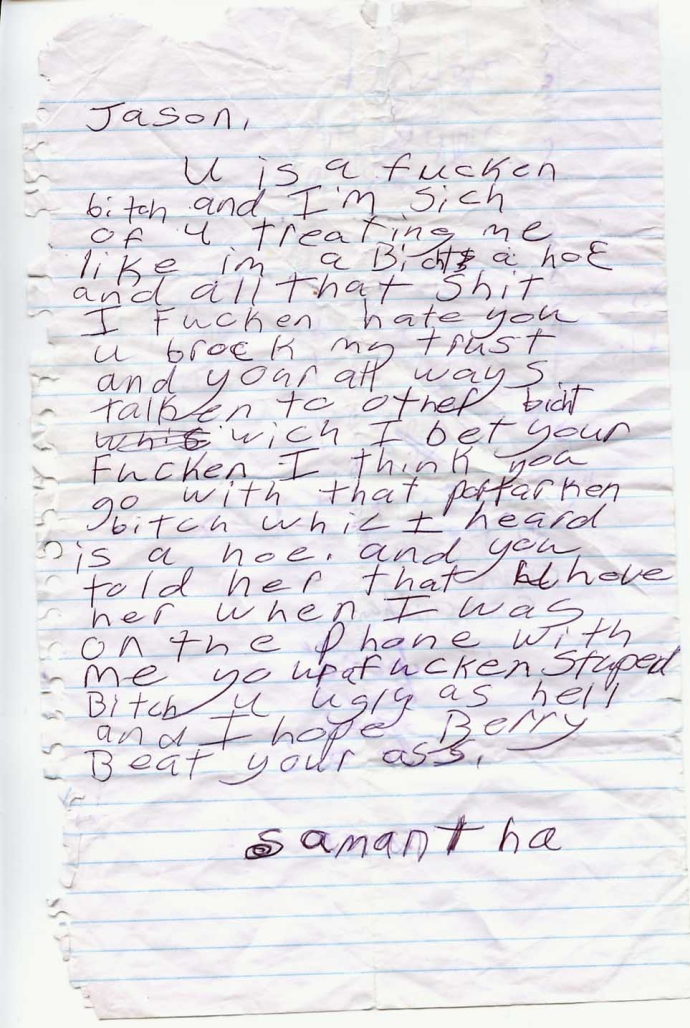 Jason,
U is a fucken
bitch and I'm Sich
of u treating me
like im a Bicht & a hoe
and all that Shit
I Fucken hate you
u brock my trust
and your all ways
talken to other bicht
wich I bet your
Fucken I think you
go with that
bitch whic I heard
is a hoe. and you
told her that
her when I was
on the Phone with
me your a fucken Stuped
Bitch u ugly as hell
and I hope Berry
Beat your ass.
Samantha